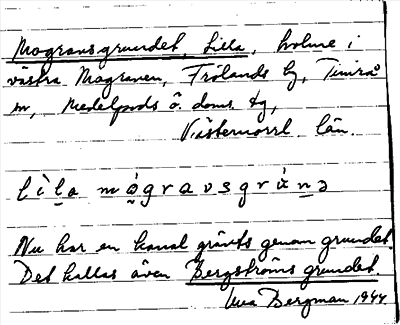 Mogravsgrundet, Lilla, holme i
västra Mograven, Frölands by, Timrå
sn, Medelpads ö. doms. tg,
Västernorrl. län.
lìla mógravsgrùnə
Nu har en kanal grävts genom grundet.
Det kallas även Bergströms grundet.
Bergman 1944